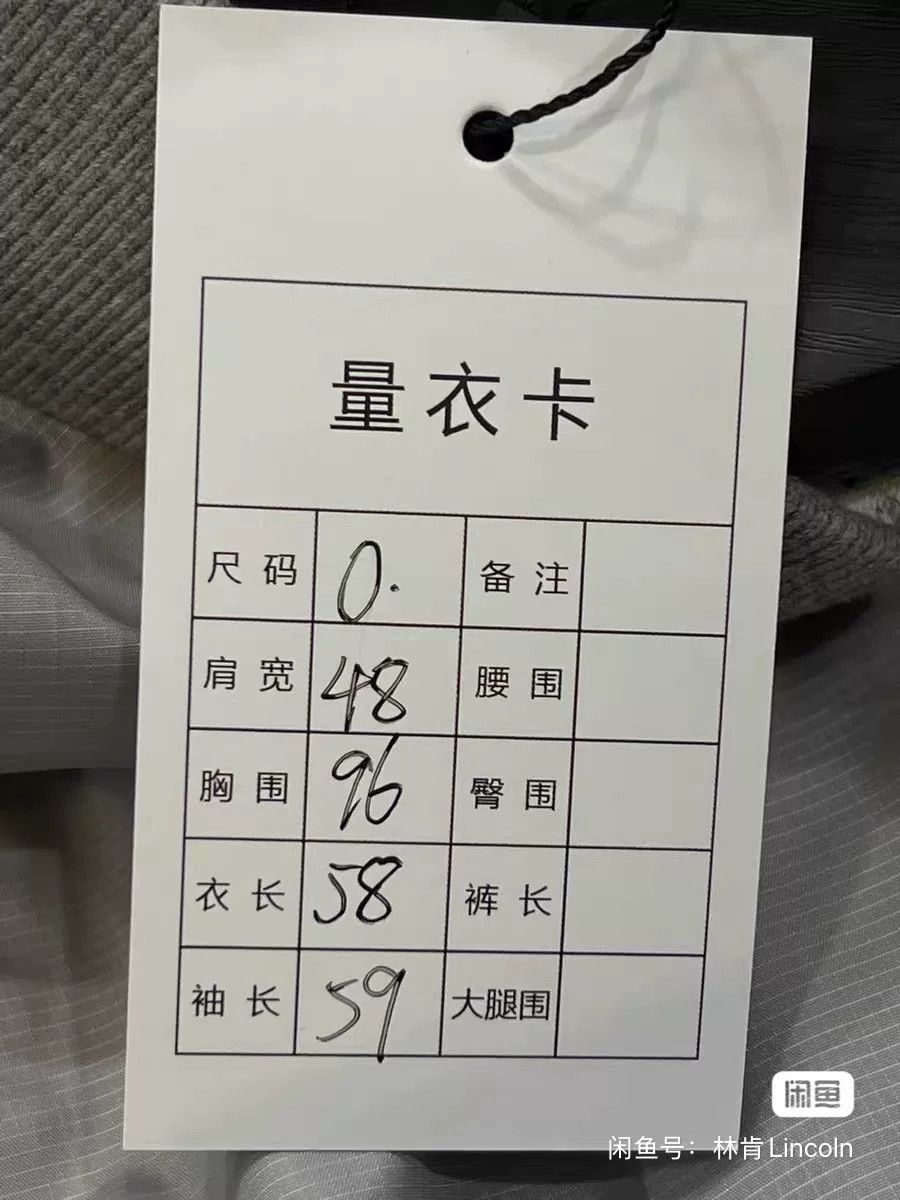 量衣卡
尺码 0. 备注
肩宽 48 腰围
胸围 96 臀围
衣长 58 裤长
袖长 59 大腿围
闲鱼
闲鱼号：林肯Lincoln